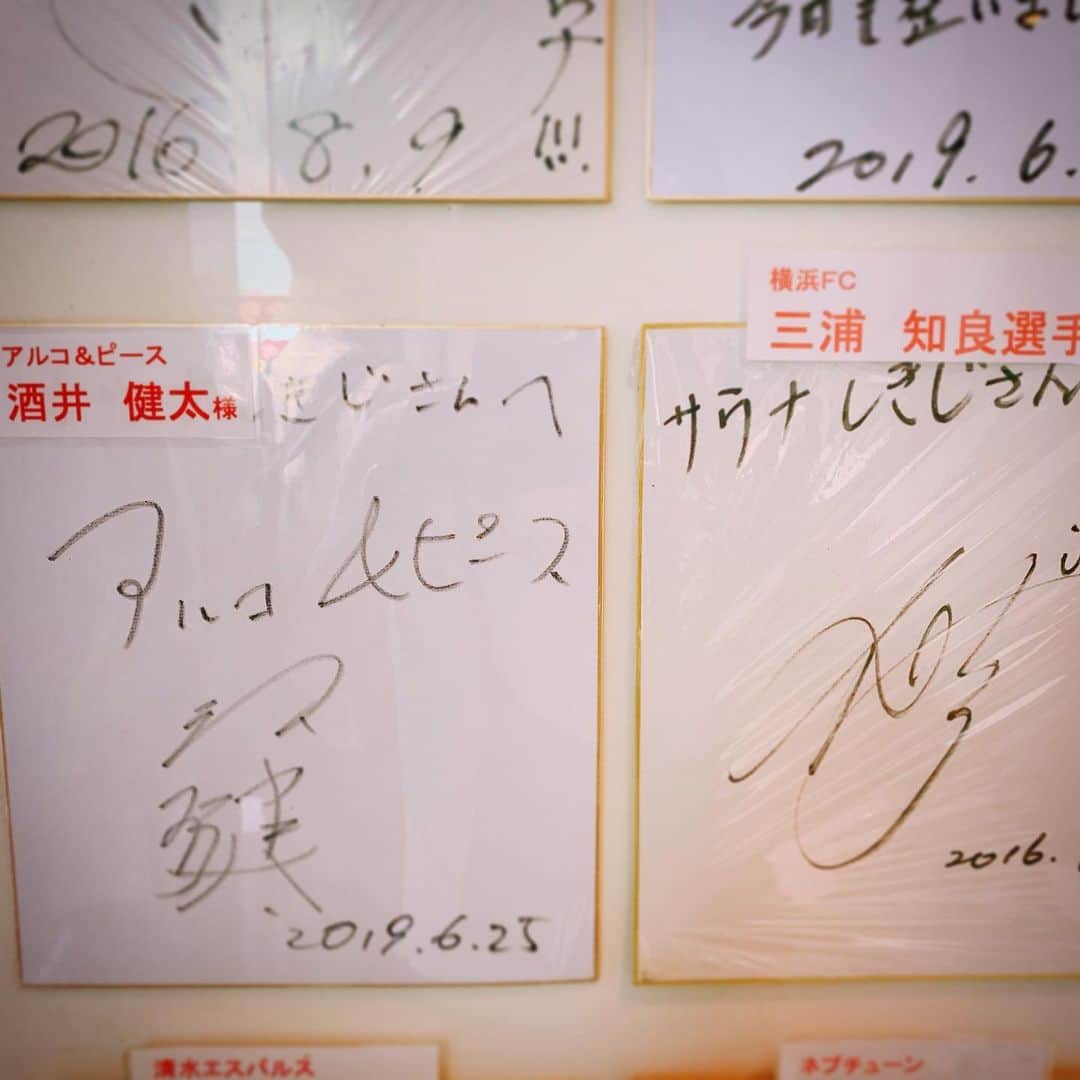 ナ!!!
2016 8.9
2019.6.
アルコ&ピース
酒井 健太様
きじさんへ
アルコ&ピース
2019.6.25
横浜FC
三浦 知良選手
サウナしきじさん
2016.
清水エスパルス
ネプチューン